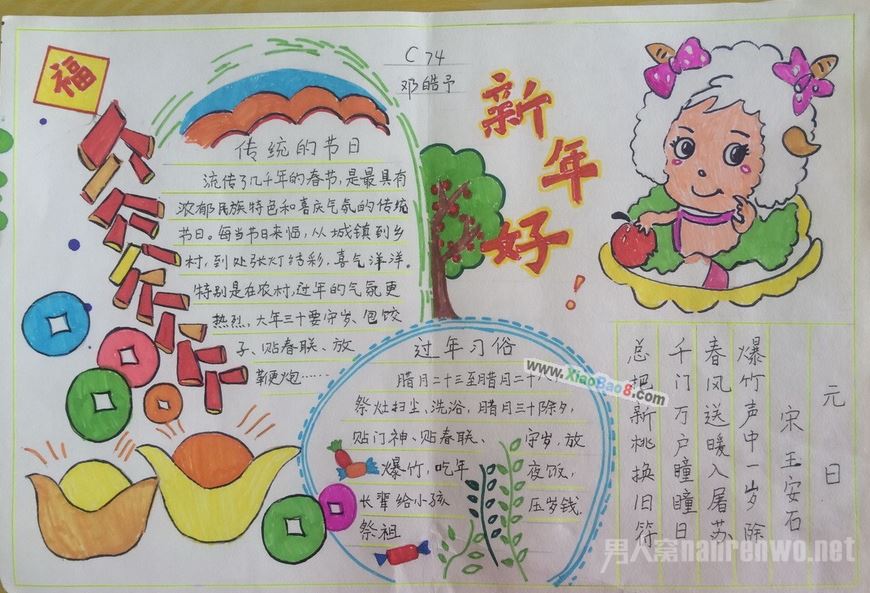 福
C74
邓皓予
新年好!
传统的节日
流传了几千年的春节,是最具有
浓郁民族特色和喜庆气氛的传统
节日。每当节日来临,从城镇到乡
村,到处张灯结彩,喜气洋洋。
特别是在农村,过年的气氛更
热烈,大年三十要守岁、包饺
子、贴春联、放
鞭炮……
过年习俗
腊月二十三至腊月二十
祭灶扫尘、洗浴,腊月三十除夕,
贴门神、贴春联、守岁,放
爆竹,吃年夜饭,
长辈给小孩压岁钱
祭祖
元日
宋 王安石
爆竹声中一岁除
春风送暖入屠苏
千门万户瞳瞳日
总把新桃换旧符
www.XiaoBao8.com
男人窝nanrenwo.net